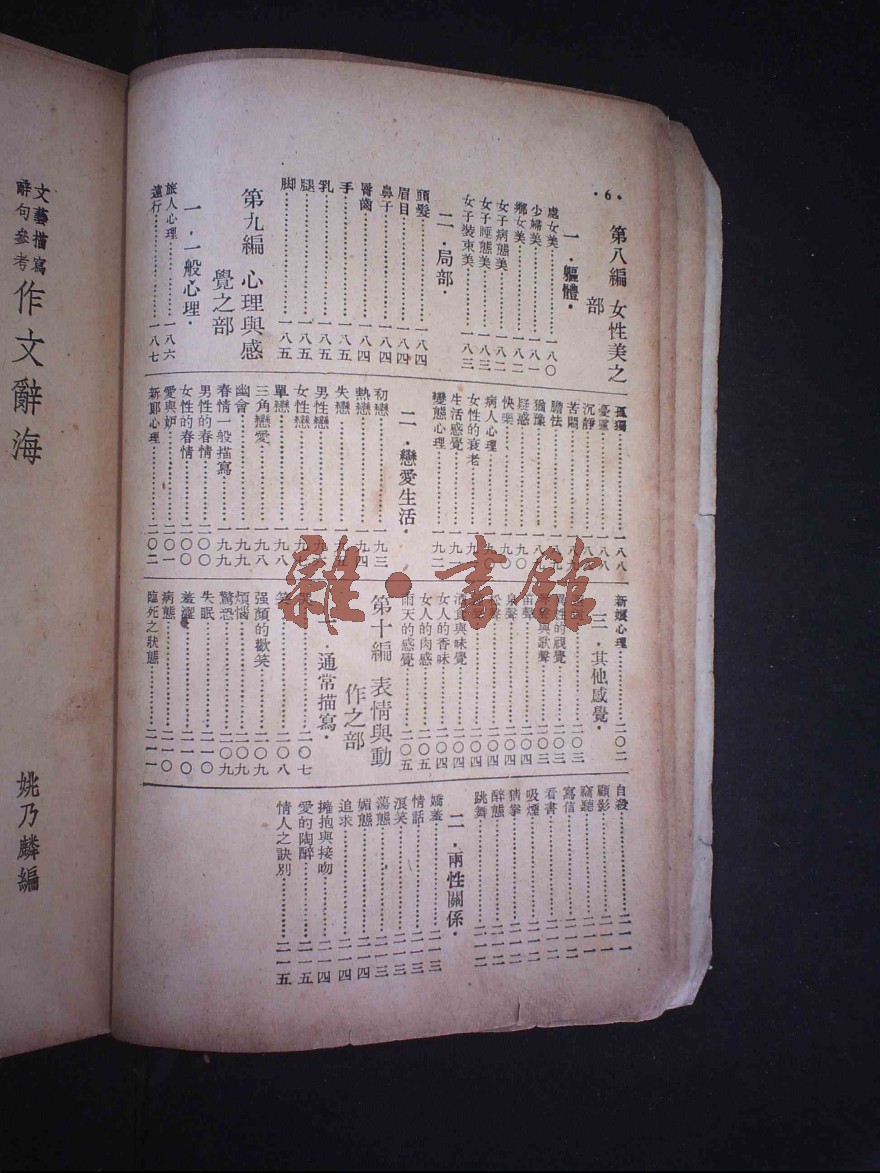 ·6·
第八編 女性美之
部
一·軀體·
處女美………一八〇
少婦美………一八一
鄉女美………一八二
女子病態美………一八二
女子睡態美………一八三
女子裝束美………一八三
二·局部·
頭髮………一八四
眉目………一八四
鼻子………一八四
脣齒………一八四
手………一八五
乳………一八五
腿………一八五
脚………一八五
第九編 心理與感
覺之部
一·一般心理·
旅人心理………一八六
遠行………一八七
孤獨………一八八
沉靜………一八八
苦悶
膽怯
猶豫
疑惑
快樂
病人心理………一九〇
女性的衰老
生活感覺
變態心理………一九二
二·戀愛生活·
初戀………一九三
熱戀………一九四
失戀………一九五
男性戀
女性戀
單戀………一九八
三角戀愛………一九八
幽會………一九九
春情一般描寫………一九九
男性的春情………二〇〇
女性的春情………二〇〇
愛與妒………二〇一
新郎心理………二〇二
新孃心理………二〇二
三·其他感覺·
二〇三
異性的視覺………二〇三
與歌聲………二〇三
笛聲………二〇四
泉聲………二〇四
松聲………二〇四
二〇四
與味覺………二〇四
女人的香味………二〇四
女人的肉感………二〇五
雨天的感覺………二〇五
第十編 表情與動
作之部
通常描寫·
哭………二〇七
笑………二〇八
强顏的歡笑………二〇九
煩惱………二〇九
驚恐………二〇九
失眠………二一〇
羞澀………二一〇
病態………二一〇
臨死之狀態………二一一
自殺………二一一
顧影………二一一
竊聽………二一一
寫信………二一二
看書………二一二
吸煙………二一二
猜拳………二一二
醉態………二一二
跳舞………二一二
二·兩性關係·
嬌羞………二一三
情話………二一三
浪笑………二一三
蕩態………二一三
媚態………二一四
追求………二一四
擁抱與接吻………二一四
愛的陶醉………二一五
情人之訣別………二一五
文藝描寫
辭句參考
作文辭海
姚乃麟編
雜·書館